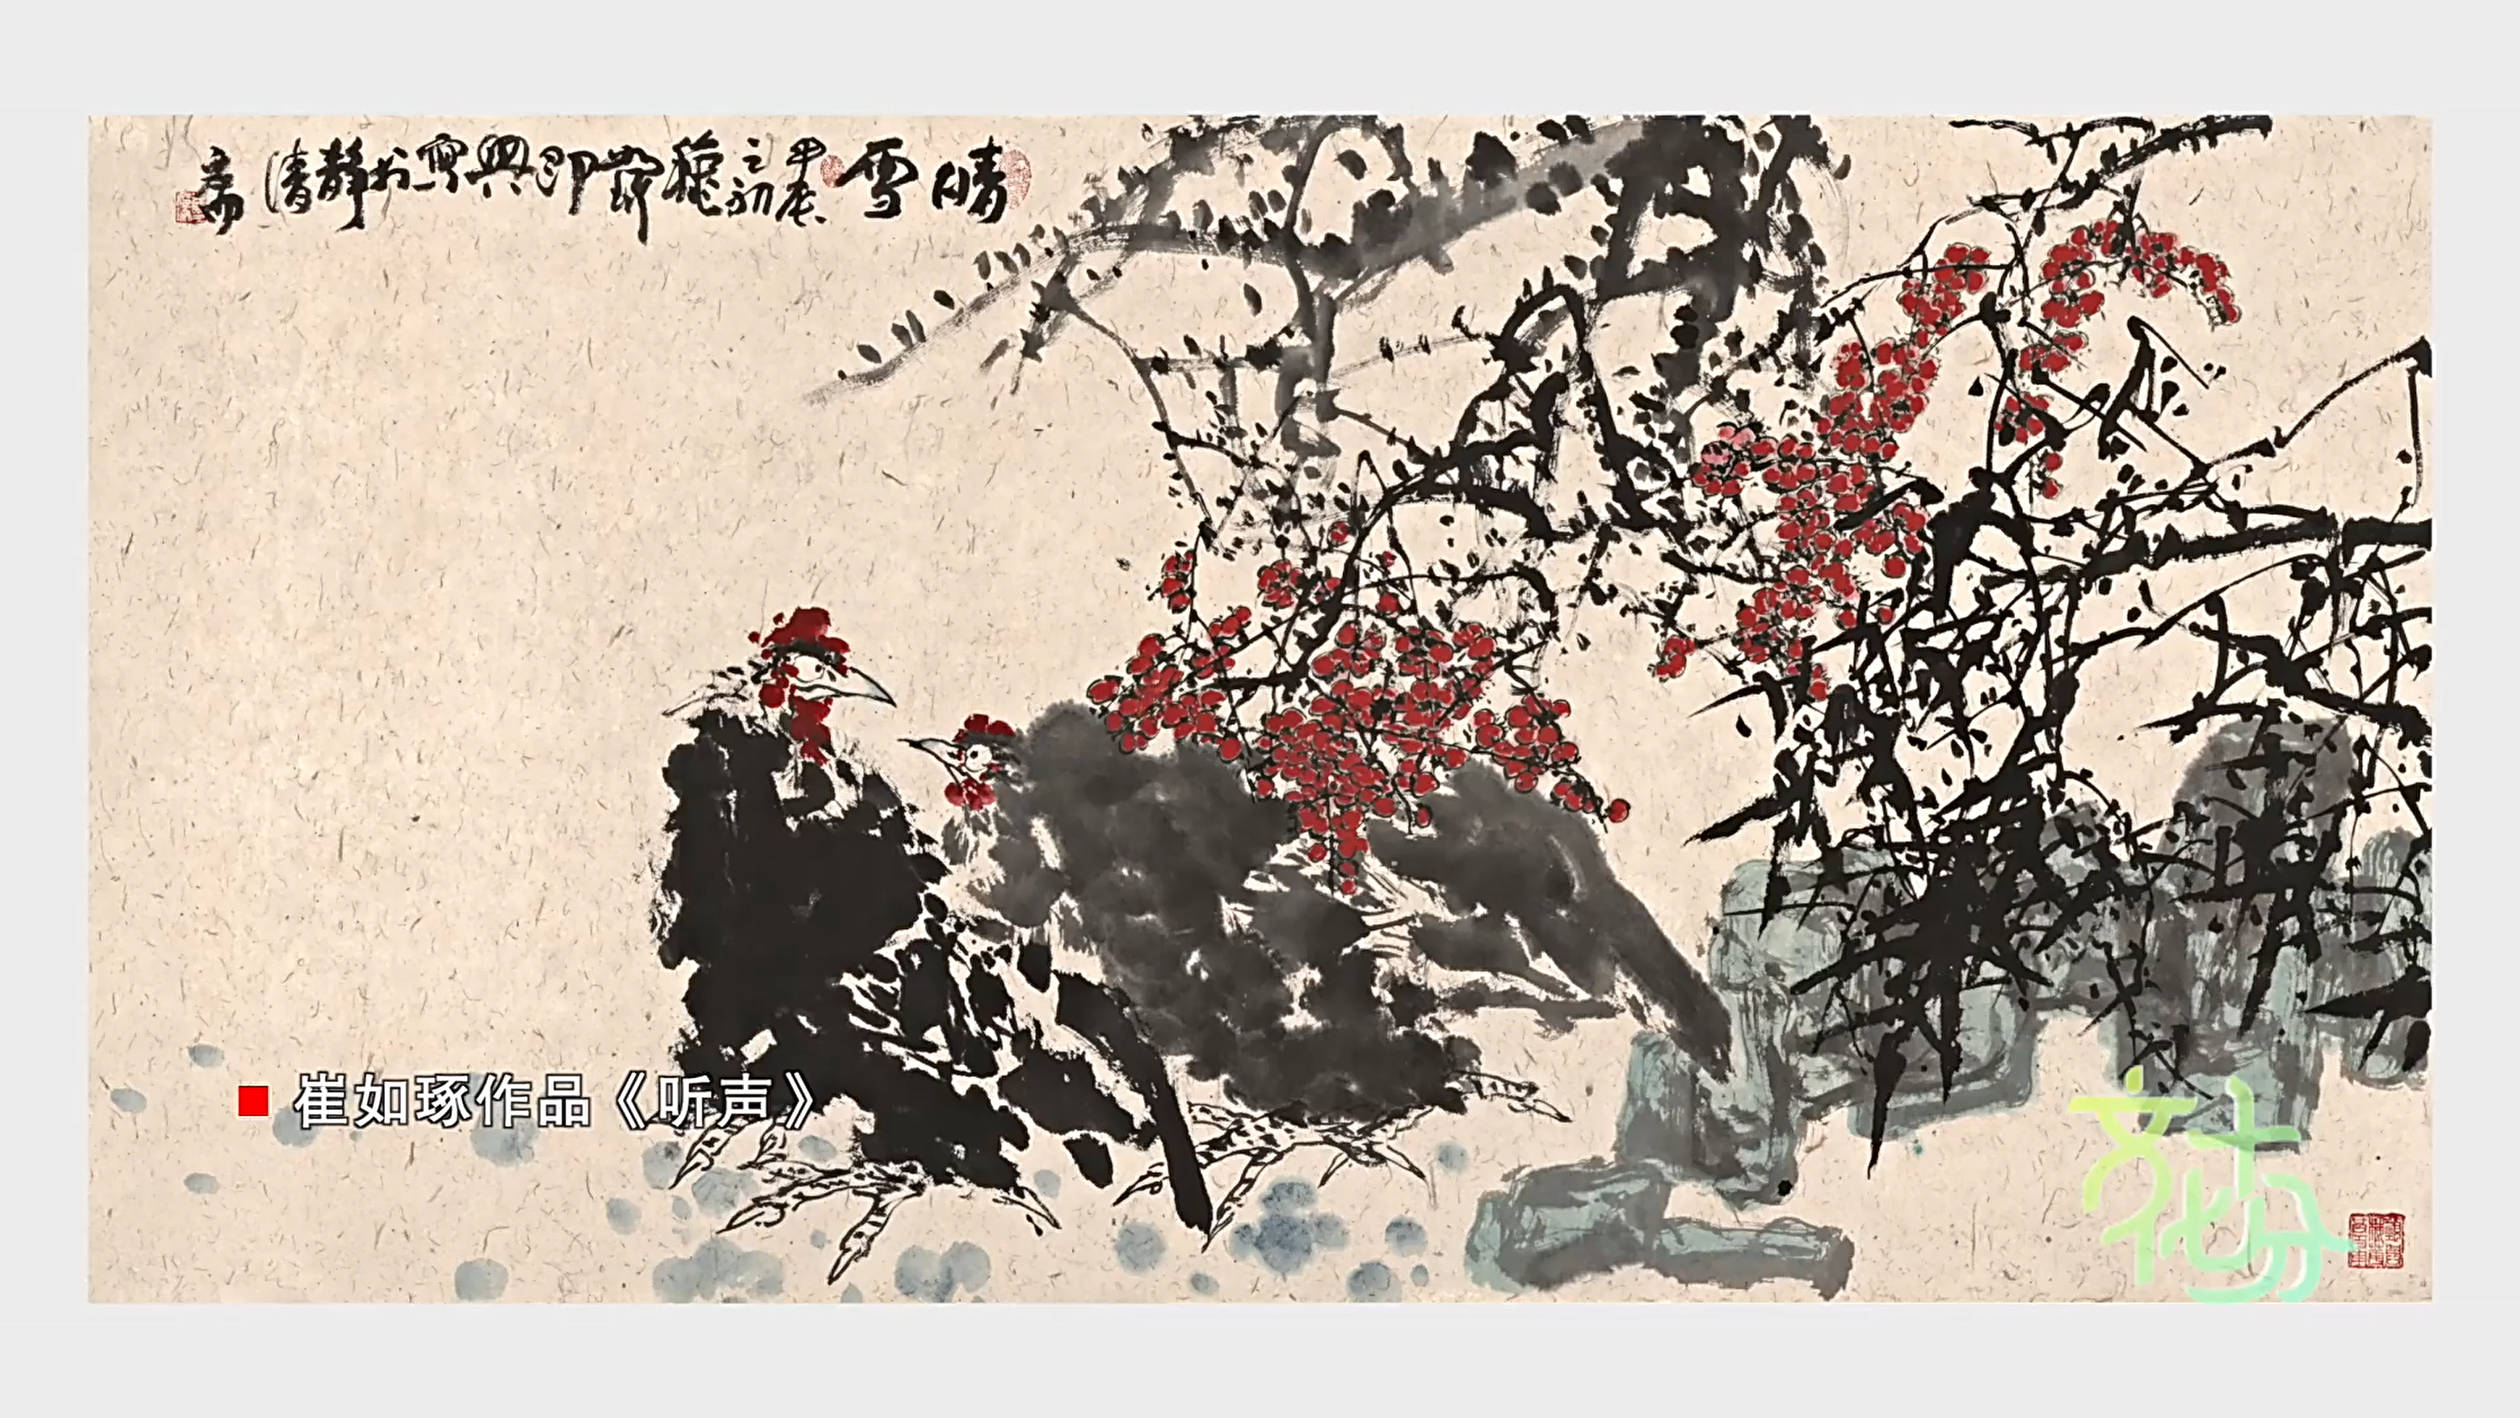 晴雪 甲辰之初 即興寫於靜清齋
崔如琢作品《听声》
文化十分